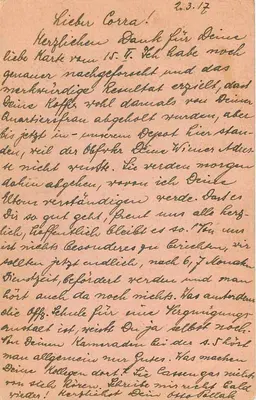 2.3.17
Lieber Corra!
Herzlichen Dank für Deine
liebe Karte vom 15. II. Ich habe noch
genauer nachgeforscht und das
merkwürdige Resultat erzielt, dass
Deine Koffer wohl damals von Deiner
Quartiersfrau abgeholt wurden, aber
bis jetzt in unserem Depot hier stan-
den, weil der Deine Wiener Adres-
se nicht wusste. Sie werden morgen
dahin abgehen, wovon ich Deine
Eltern verständigen werde. Dass es
Dir so gut geht, freut uns alle herz-
lich, hoffentlich bleibt es so! Von uns
ist nichts besonderes zu berichten, wir
sollten jetzt endlich, nach 6, 7 Monaten
Frontzeit, befördert werden und man
hört auch da noch nichts. Was
die Off. Schule für eine Vergnügungs-
anstalt ist, weisst Du ja selbst noch.
Von Deinen Kameraden bei der 5. hört
man allgemein nur Gutes. Was machen
Deine Kollegen dort? Sie lassen gar nichts
von sich hören. Schreibe mir recht bald
wieder! Herzlichst Dein Otto Pollak